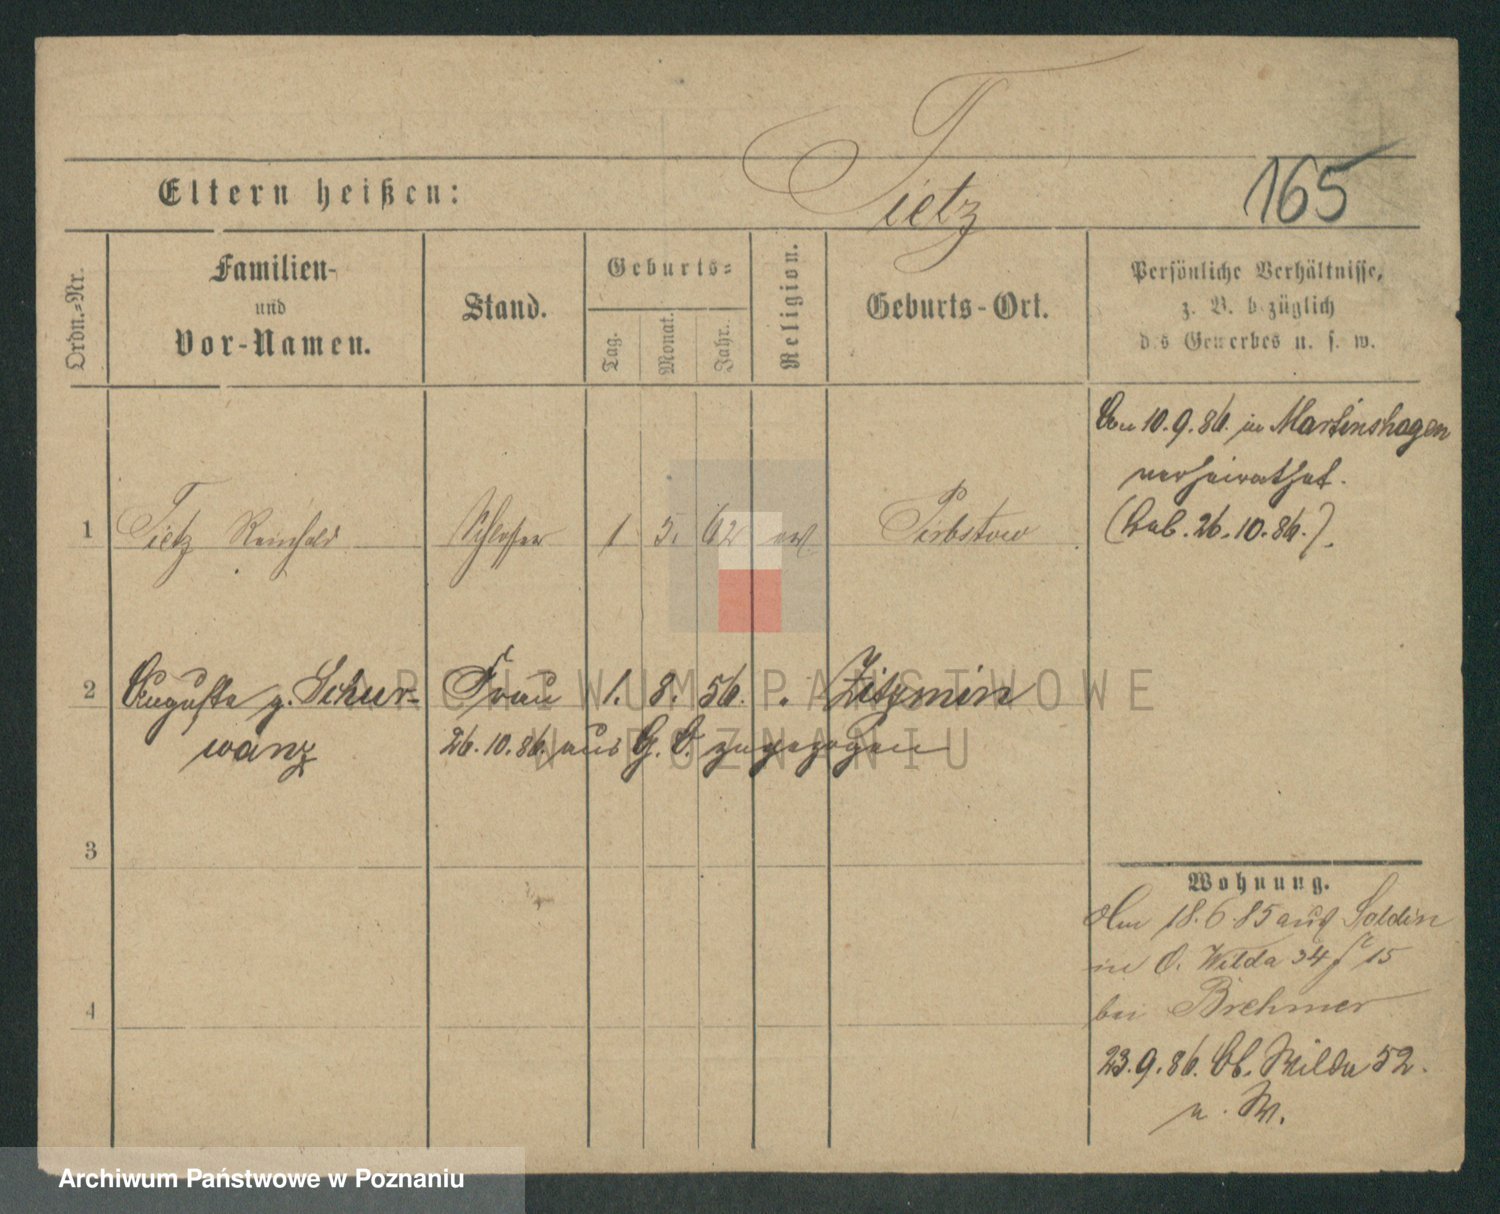 Tietz
165
Eltern heißen:
Ordn.=Nr.
Familien-
und
Vor-Namen.
Stand.
Geburts=
Tag.
Monat.
Jahr.
Religion.
Geburts-Ort.
Persönliche Verhältnisse,
z. B. bezüglich
des Gewerbes u. s. w.
Am 10.9.86. in Martinshagen
verheirathet.
26.10.86.)
1 Tietz Reinhold Schlosser 1 5. 62 ev Pirbstow
2 Auguste g. Schur- Frau 1. 8. 56. Zitzmin
wanz 26.10.86. aus G. O. zugezogen
3
4
Wohnung.
Am 18.6.85 aus Soldin
in O. Wilda 34 15
bei Brehmer
23.9.86. Ob. Wilda 52.
u. W.
ARCHIWUM PAŃSTWOWE
W POZNANIU
Archiwum Państwowe w Poznaniu